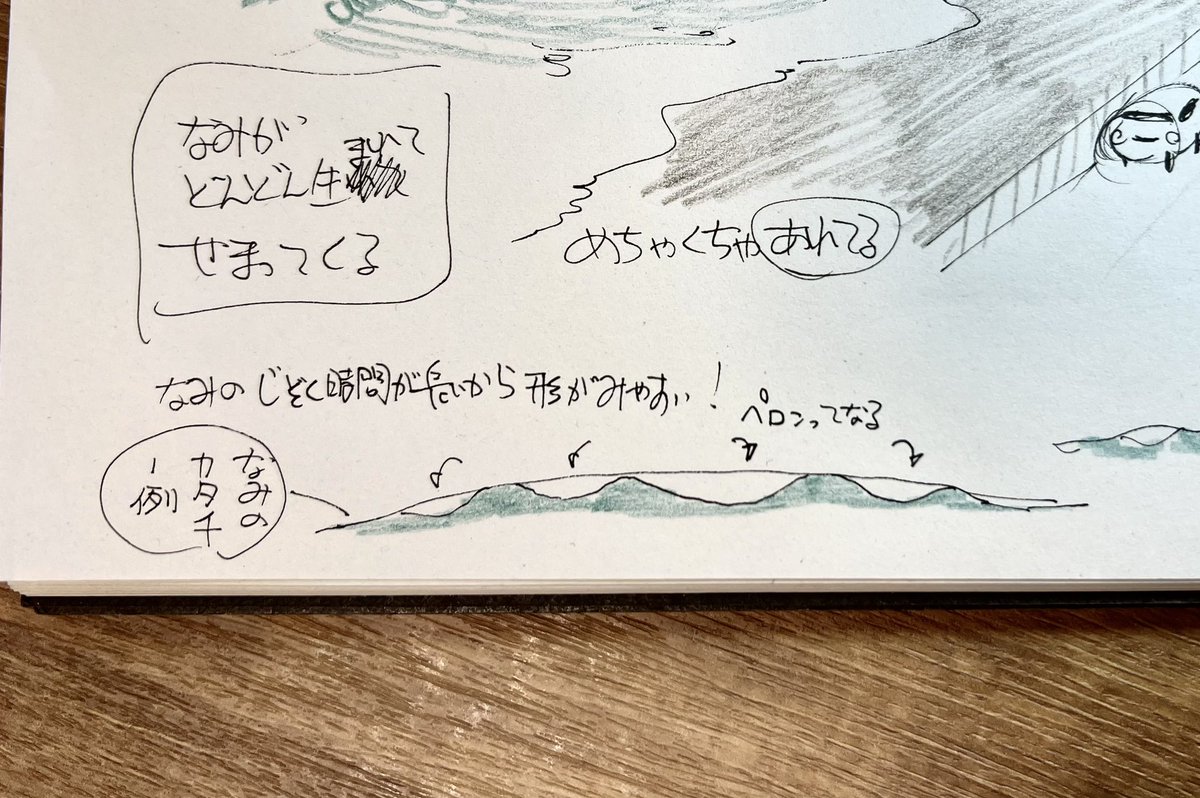 なみが
どんどん生まれて
せまってくる
めちゃくちゃあれてる
なみのじぞく時間が長いから形がみやすい！
ペロンってなる
なみの
カタチ
一例